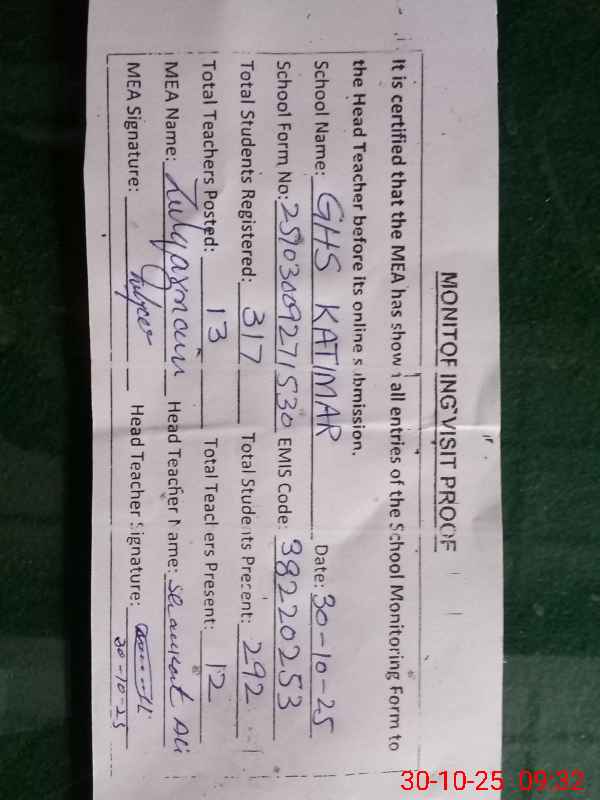 MONITORING VISIT PROOF
It is certified that the MEA has shown all entries of the School Monitoring Form to
the Head Teacher before its online submission.
School Name: GHS KATIMAR Date: 30-10-25
School Form No: 25903009271530 EMIS Code: 38220253
Total Students Registered: 317 Total Students Present: 292
Total Teachers Posted: 13 Total Teachers Present: 12
MEA Name: Zulqarnain Head Teacher Name: Ali
MEA Signature: Head Teacher Signature:
30-10-25
30-10-25 09:32